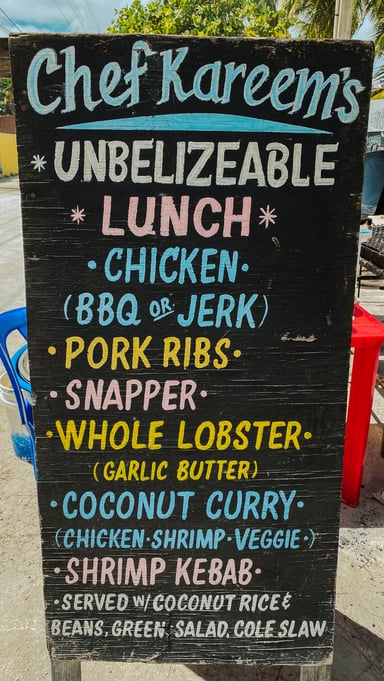 Chef Kareem's
*UNBELIZEABLE
* LUNCH *
• CHICKEN •
(BBQ OR JERK)
• PORK RIBS •
• SNAPPER •
• WHOLE LOBSTER •
(GARLIC BUTTER)
• COCONUT CURRY •
(CHICKEN • SHRIMP • VEGGIE •)
• SHRIMP KEBAB •
• SERVED W/ COCONUT RICE &
BEANS, GREEN SALAD, COLE SLAW